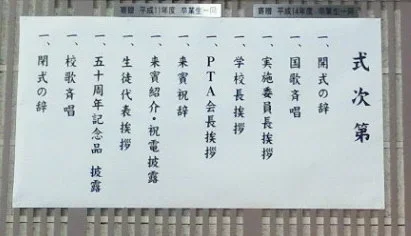 寄贈 平成11年度 卒業生一同
寄贈 平成14年度 卒業生一同
式次第
一、開式の辞
一、国歌斉唱
一、実施委員長挨拶
一、学校長挨拶
一、PTA会長挨拶
一、来賓祝辞
一、来賓紹介・祝電披露
一、生徒代表挨拶
一、五十周年記念品 披露
一、校歌斉唱
一、閉式の辞